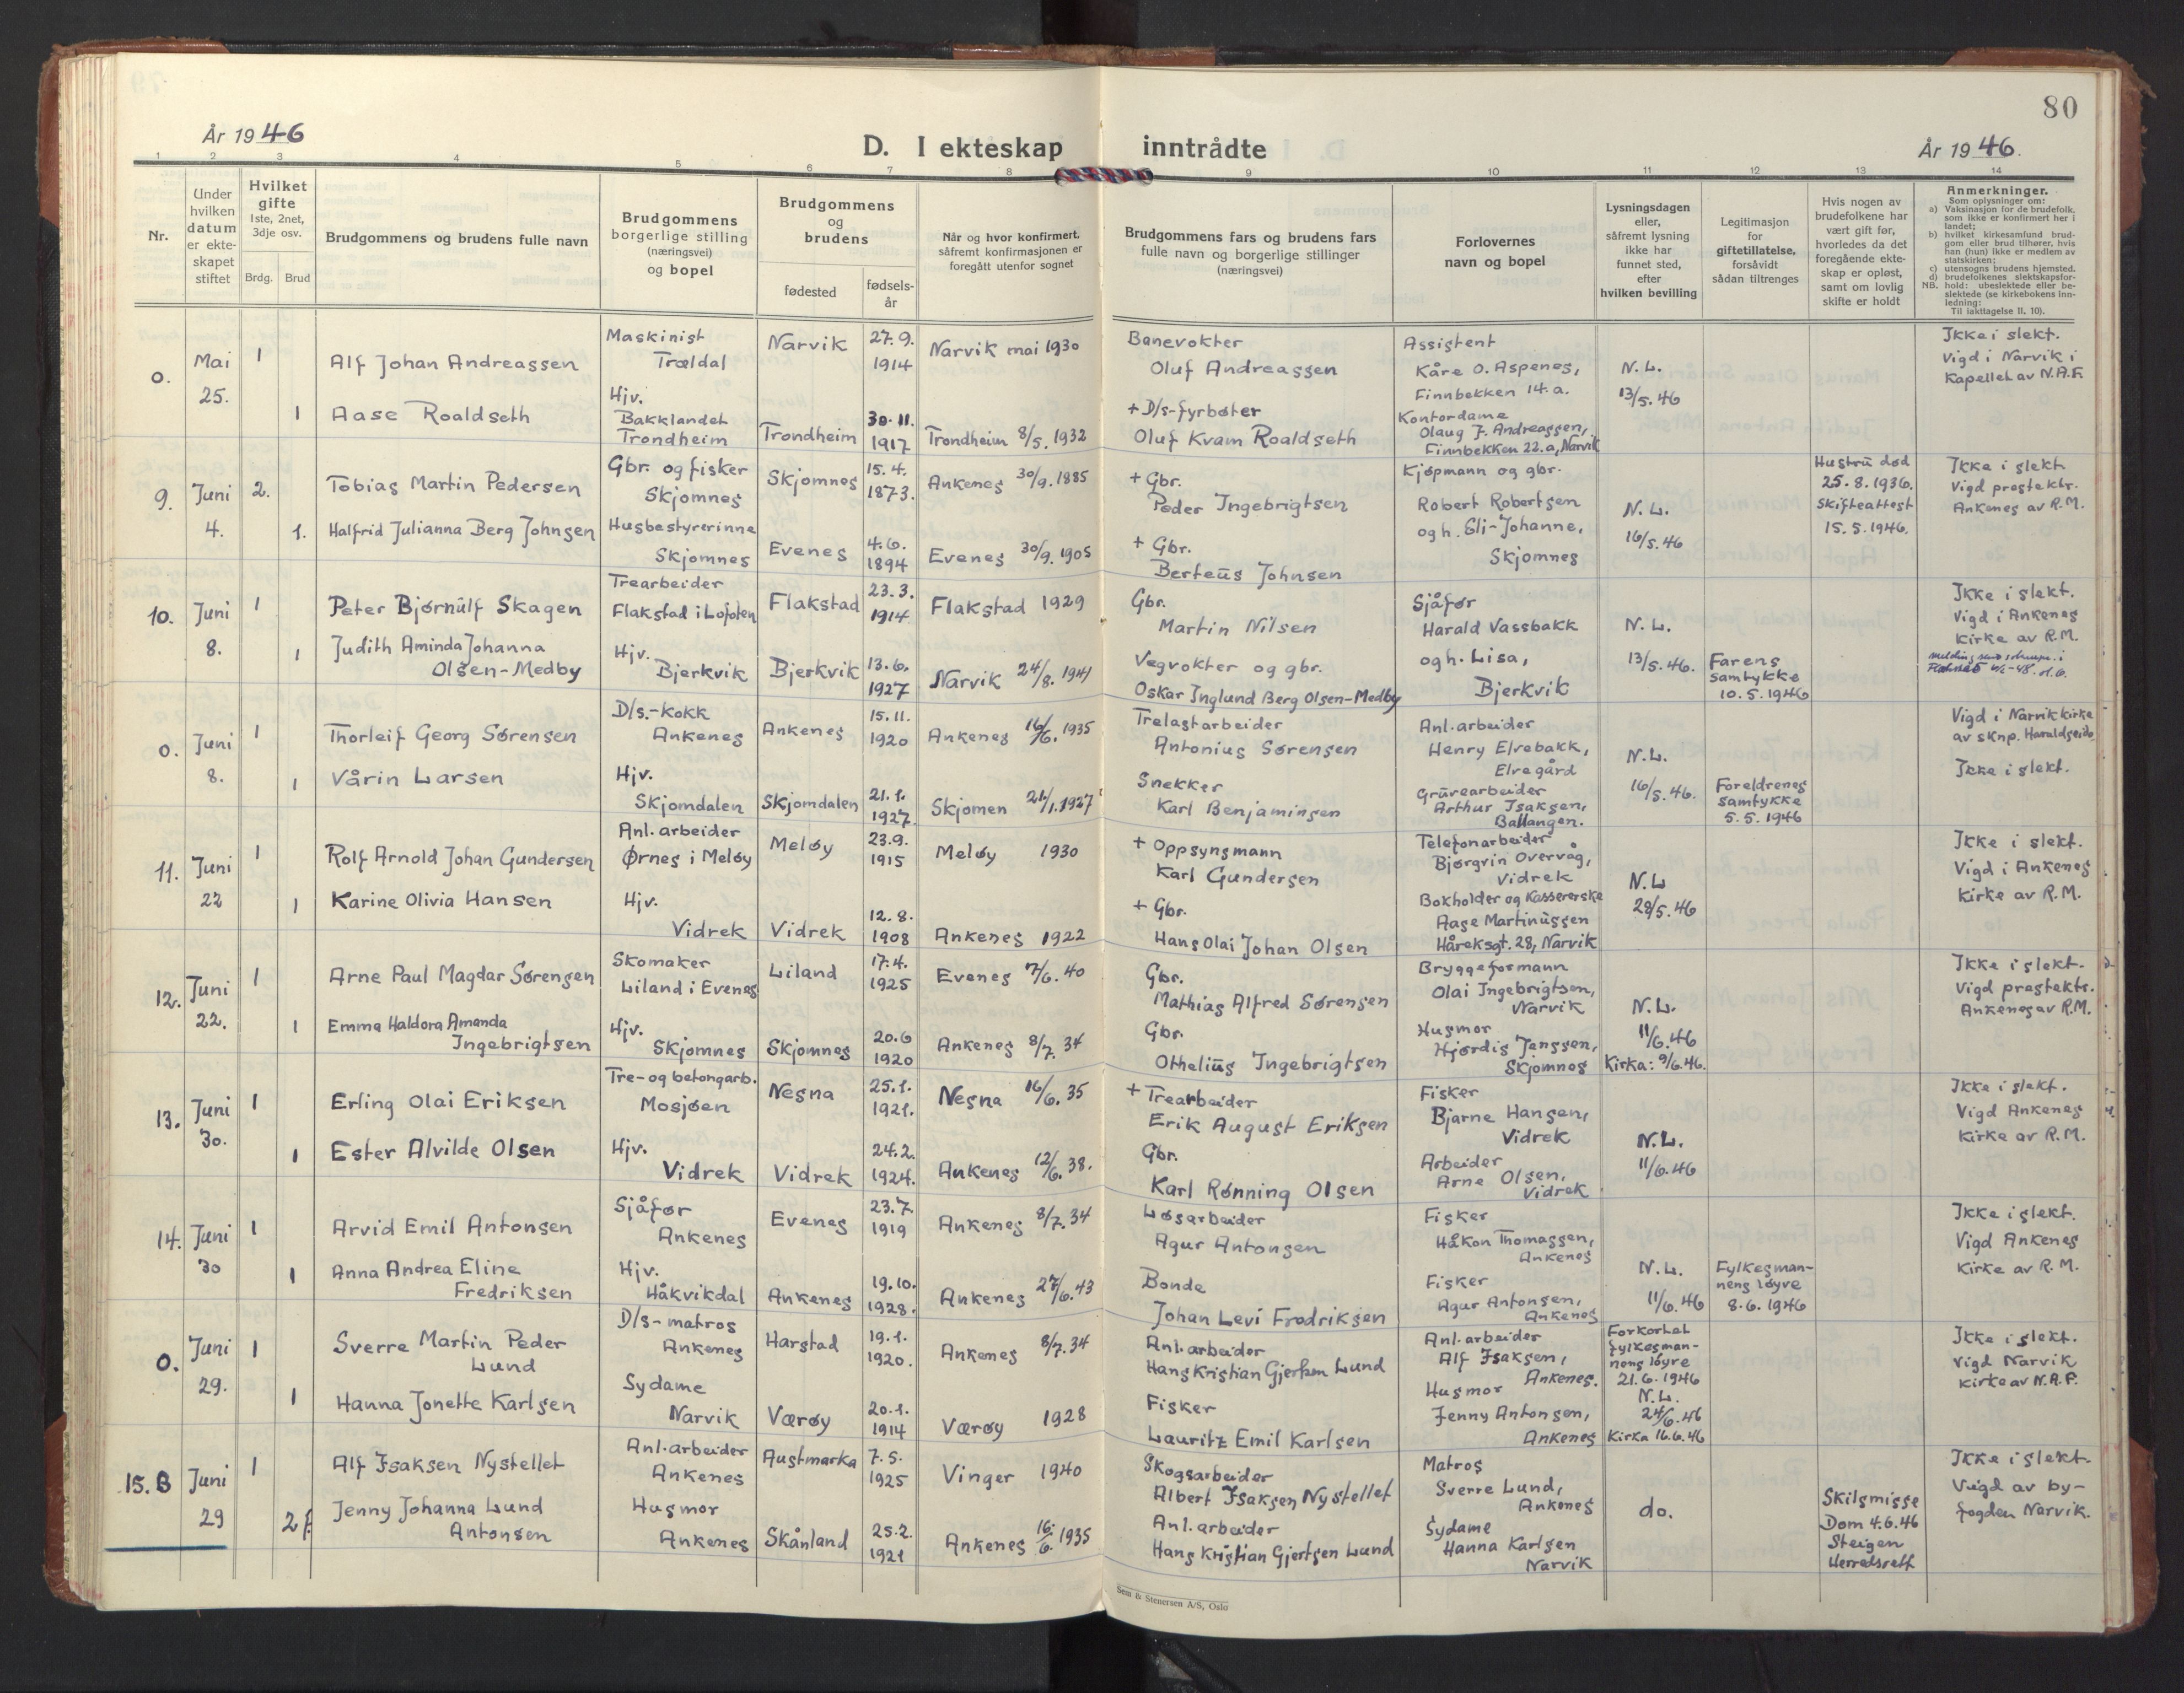 80
År 1946
D. I ekteskap inntrådte
År 1946.
1 2 3 4 5 6 7 8 9 10 11 12 13 14
Nr.
Under hvilken datum er ekteskapet stiftet
Hvilket gifte
1ste, 2net, 3dje osv.
Brdg. Brud
Brudgommens og brudens fulle navn
Brudgommens borgerlige stilling (næringsvei) og bopel
Brudgommens og brudens
fødested
fødselsår
Når og hvor konfirmert, såfremt konfirmasjonen er foregått utenfor sognet
Brudgommens fars og brudens fars fulle navn og borgerlige stillinger (næringsvei)
Forlovernes navn og bopel
Lysningsdagen eller, såfremt lysning ikke har funnet sted, efter hvilken bevilling
Legitimasjon for giftetillatelse, forsåvidt sådan tiltrenges
Hvis nogen av brudefolkene har vært gift før, hvorledes da det foregående ekteskap er opløst, samt om lovlig skifte er holdt
Anmerkninger.
Som oplysninger om:
a) Vaksinasjon for de brudefolk, som ikke er konfirmert her i landet;
b) hvilket kirkesamfund brudgom eller brud tilhører, hvis han (hun) ikke er medlem av statskirken;
c) utensogns brudens hjemsted.
d) brudefolkenes slektskapsforhold: ubeslektede eller beslektede (se kirkebokens innledning:
NB.
Til iakttagelse II, 10).
o. Mai 25. 1
Alf Johan Andreassen
Maskinist
Trældal
Narvik
27.9.
1914
Narvik mai 1930
Banevokter
Oluf Andreassen
Assistent
Kåre O. Aspenes,
Finnbekken 14.a.
N.L.
13/5.46
Ikke i slekt.
Vigd i Narvik i
Kapellet av N.A.F.
1
Aase Roaldseth
Hjv.
Bakklandet
Trondheim
Trondheim
30.11.
1917
Trondheim 8/5.1932
+ D/s-fyrbøter
Oluf Kvam Roaldseth
Kontordame
Olaug J. Andreassen,
Finnbekken 22.a, Narvik
9. Juni 4. 2.
Tobias Martin Pedersen
Gbr. og fisker
Skjomnes
Skjomnes
15.4.
1873.
Ankenes 30/9.1885
+ Gbr.
Peder Ingebrigtsen
Kjøpmann og gbr.
Robert Robertsen
og h. Eli-Johanne,
Skjomnes
N.L.
16/5.46
Hustru død
25.8.1936.
Skifteattest
15.5.1946.
Ikke i slekt
Vigd prestektr.
Ankenes av R.M.
1.
Halfrid Julianna Berg Johnsen
Husbestyrerinne
Skjomnes
Evenes
4.6.
1894
Evenes 30/9.1905
+ Gbr.
Berteus Johnsen
10. Juni 8. 1
Peter Bjørnulf Skagen
Trearbeider
Flakstad i Lofoten
Flakstad
23.3.
1914
Flakstad 1929
Gbr.
Martin Nilsen
Sjåfør
Harald Vassbakk
og h. Lisa,
Bjerkvik
N.L.
13/5.46.
Farens
samtykke
10.5.1946
Ikke i slekt.
Vigd i Ankenes
Kirke av R.M.
1
Judith Aminda Johanna
Olsen-Medby
Hjv.
Bjerkvik
Bjerkvik
13.6.
1927
Narvik 24/8.1941
Vegvokter og gbr.
Oskar Inglund Berg Olsen-Medby
o. Juni 8. 1
Thorleif Georg Sørensen
D/s.-kokk
Ankenes
Ankenes
15.11.
1920
Ankenes 16/6.1935
Trelastarbeider
Antonius Sørensen
Anl.arbeider
Henry Elvebakk,
Elvegård
N.L.
16/5.46.
Foreldrenes
samtykke
5.5.1946
Vigd i Narvik kirke
av sknp. Haraldseide
Ikke i slekt.
1
Vårin Larsen
Hjv.
Skjomdalen
Skjomdalen
21.1.
1927.
Skjomen 21/1.1927
Snekker
Karl Benjaminsen
Gruvearbeider
Arthur Isaksen,
Ballangen.
11. Juni 22 1
Rolf Arnold Johan Gundersen
Anl.arbeider
Ørnes i Meløy
Meløy
23.9.
1915
Meløy 1930
+ Oppsynsmann
Karl Gundersen
Telefonarbeider
Bjørgvin Overvåg,
Vidrek
N.L
28/5.46
Ikke i slekt.
Vigd i Ankenes
Kirke av R.M.
1
Karine Olivia Hansen
Hjv.
Vidrek
Vidrek
12.8.
1908
Ankenes 1922
+ Gbr.
Hans Olai Johan Olsen
Bokholder og Kassererske
Aase Martinussen
Håreksgt. 28, Narvik
12. Juni 22. 1
Arne Paul Magdar Sørensen
Skomaker
Liland i Evenes
Liland
17.4.
1925
Evenes 7/6.40
Gbr.
Mathias Alfred Sørensen
Bryggeformann
Olai Ingebrigtsen,
Narvik
N.L.
11/6.46
Kirka: 9/6.46.
Ikke i slekt.
Vigd prestektr.
Ankenes av R.M.
1
Emma Haldora Amanda
Ingebrigtsen
Hjv.
Skjomnes
Skjomnes
20.6
1920
Ankenes 8/7.34
Gbr.
Othelius Ingebrigtsen
Husmor
Hjørdis Jenssen,
Skjomnes
13. Juni 30. 1
Erling Olai Eriksen
Tre- og betongarb.
Mosjøen
Nesna
25.1.
1921.
Nesna 16/6.35
+ Trearbeider
Erik August Eriksen
Fisker
Bjarne Hansen,
Vidrek
N.L.
11/6.46
Ikke i slekt.
Vigd Ankenes
Kirke av R.M.
1
Ester Alvilde Olsen
Hjv.
Vidrek
Vidrek
24.2.
1924.
Ankenes 12/6.38.
Gbr.
Karl Rønning Olsen
Arbeider
Arne Olsen,
Vidrek
14. Juni 30 1
Arvid Emil Antonsen
Sjåfør
Ankenes
Evenes
23.7.
1919
Ankenes 8/7.34
Løsarbeider
Agur Antonsen
Fisker
Håkon Thomassen,
Ankenes
N.L.
11/6.46
Fylkesman-
nens løyve
8.6.1946
Ikke i slekt.
Vigd Ankenes
Kirke av R.M.
1
Anna Andrea Eline
Fredriksen
Hjv.
Håkvikdal
Ankenes
19.10.
1928.
Ankenes 27/6.43
Bonde
Johan Levi Fredriksen
Fisker
Agur Antonsen,
Ankenes
o. Juni 29. 1
Sverre Martin Peder
Lund
D/s-matros
Ankenes
Harstad
19.1.
1920.
Ankenes 8/7.34
Anl.arbeider
Hans Kristian Gjertsen Lund
Anl.arbeider
Alf Isaksen,
Ankenes.
Forkortet
fylkesman-
nens løyre
21.6.1946
N.L.
24/6.46
Kirka 16.6.46
Ikke i slekt.
Vigd Narvik
Kirke av N.A.F.
1
Hanna Jonette Karlsen
Sydame
Narvik
Værøy
20.1.
1914
Værøy 1928
Fisker
Lauritz Emil Karlsen
Husmor
Jenny Antonsen,
Ankenes
15.B Juni 29 1
Alf Isaksen Nystellet
Anl.arbeider
Ankenes
Austmarka
7.5.
1925
Vinger 1940
Skogsarbeider
Albert Isaksen Nystellet
Matros
Sverre Lund,
Ankenes
do.
Skilsmisse
Dom 4.6.46
Steigen
Herredsrett
Ikke i slekt.
Vigd av by-
fogden Narvik.
2 f.
Jenny Johanna Lund
Antonsen
Husmor
Ankenes
Skånland
25.2.
1921
Ankenes 16/6.1935
Anl.arbeider
Hans Kristian Gjertsen Lund
Sydame
Hanna Karlsen
Narvik
Sem & Stenersen A/S, Oslo